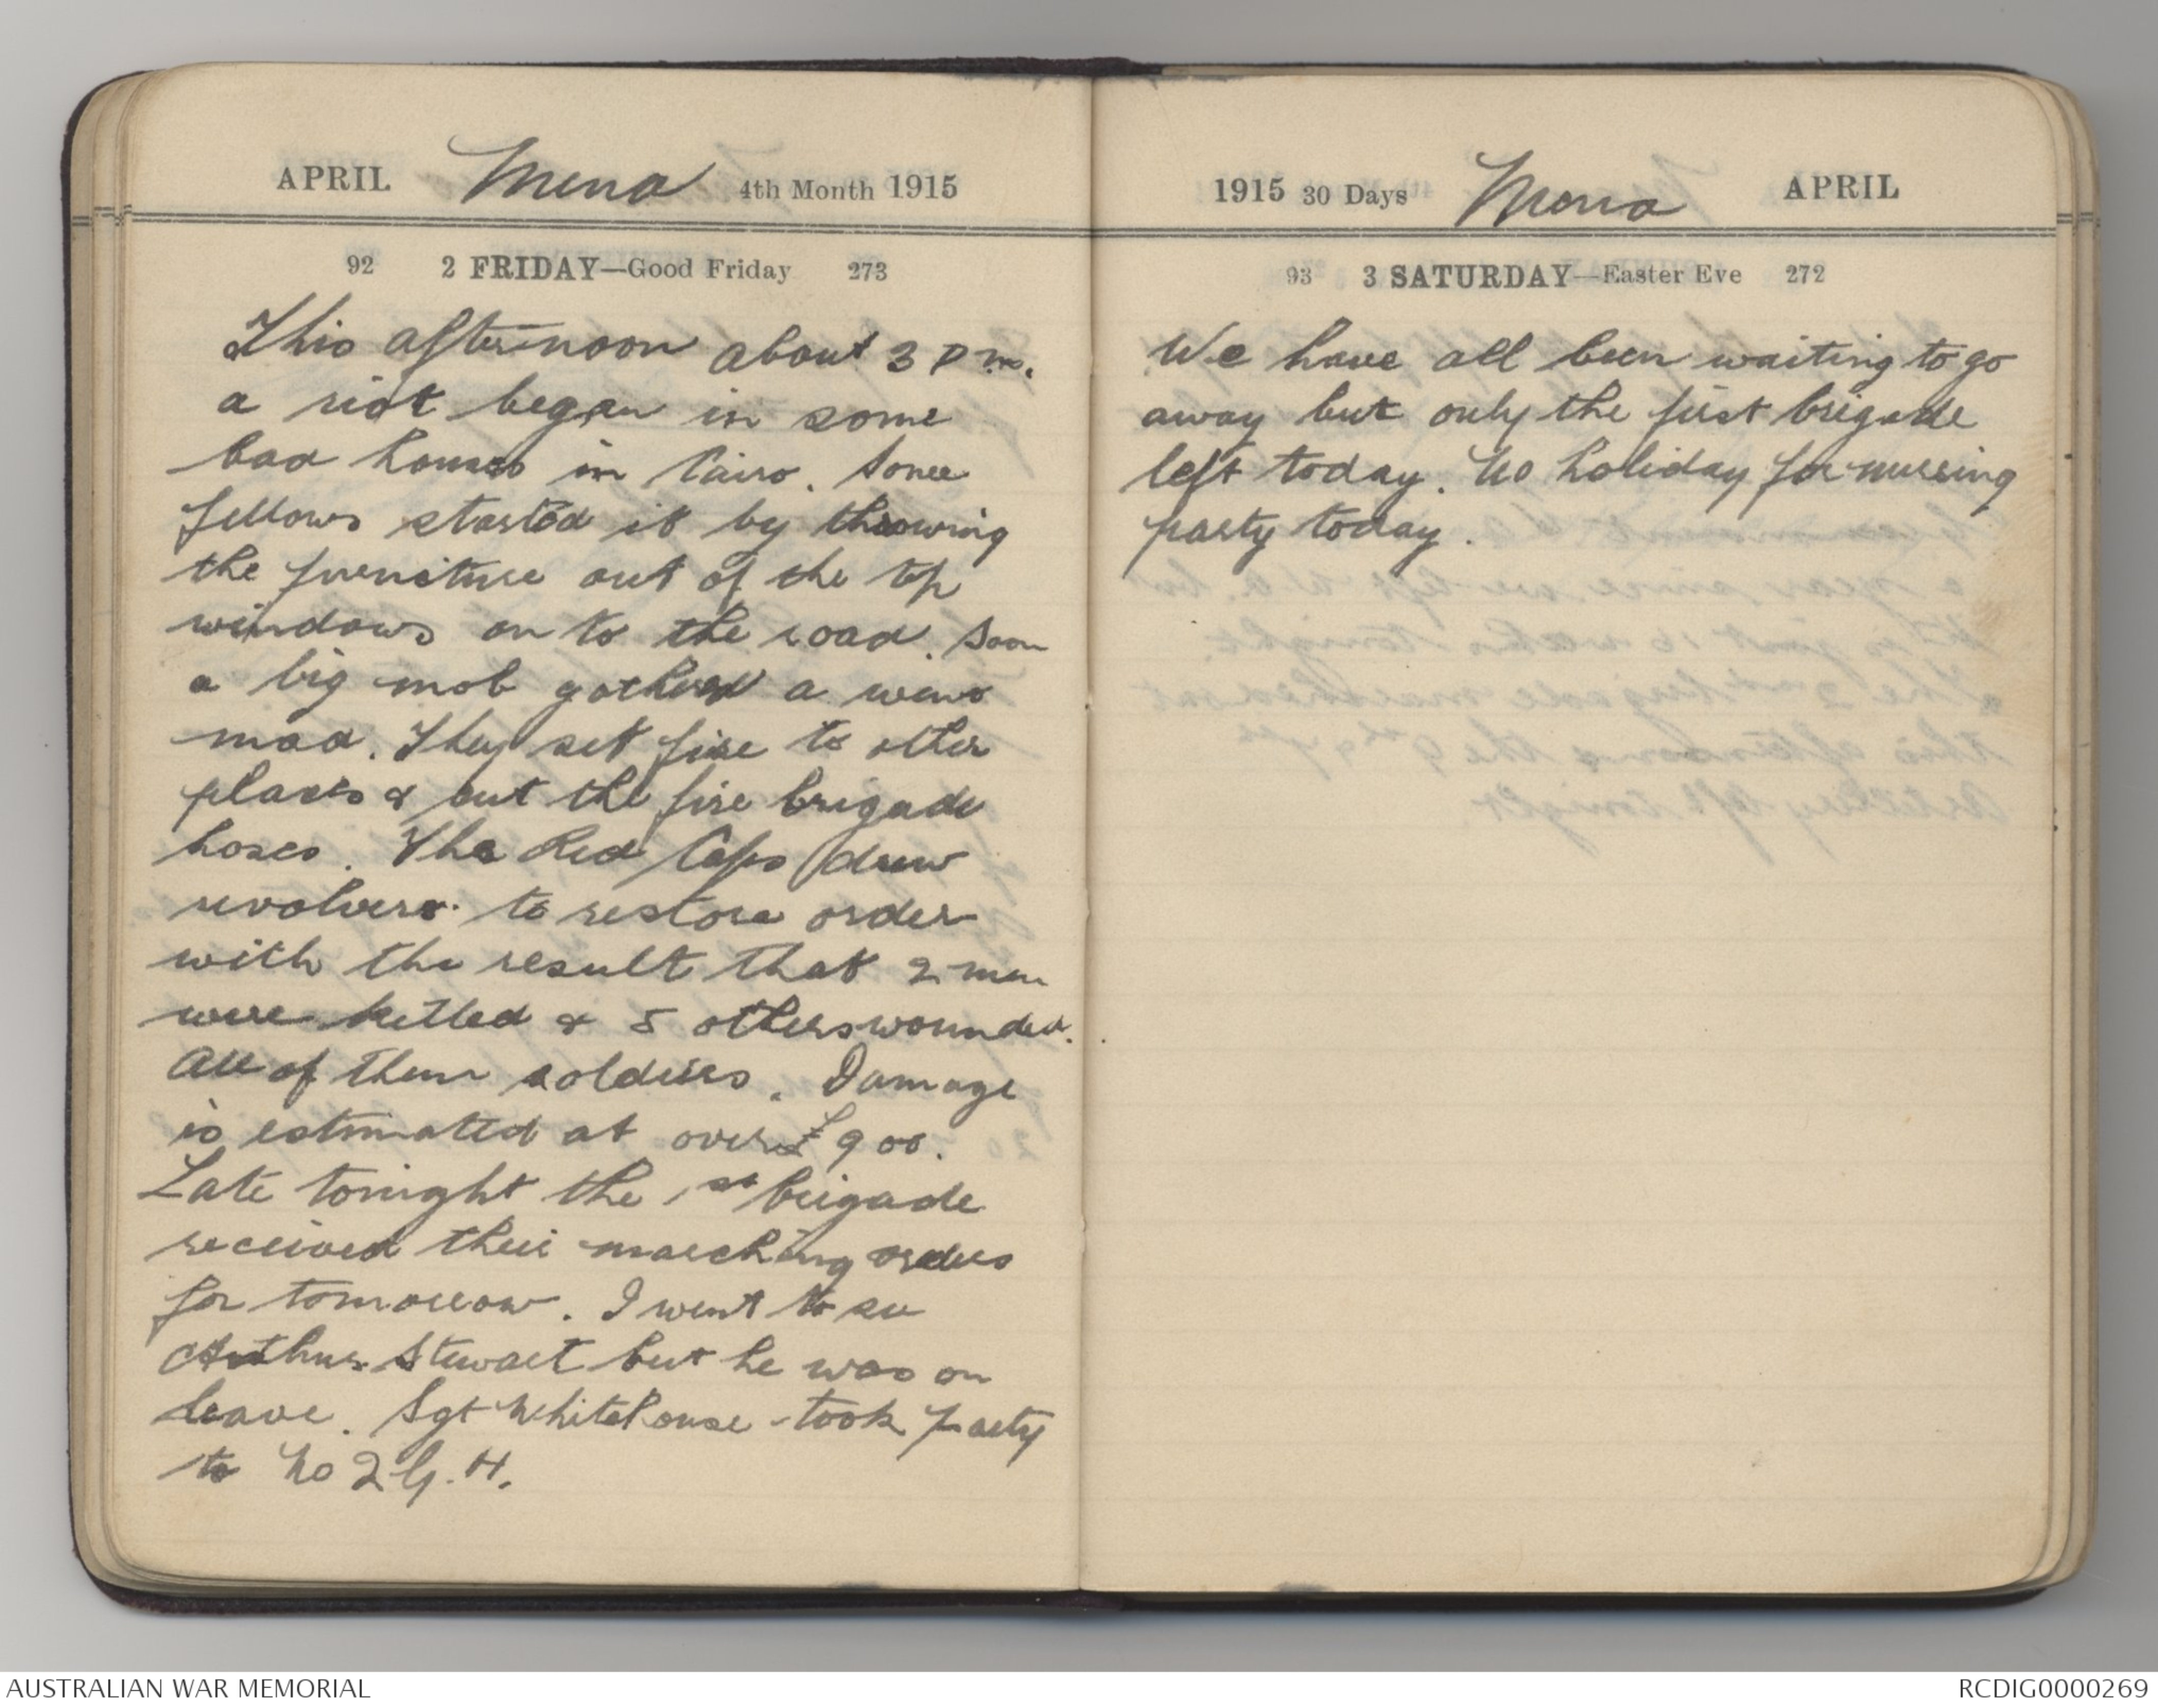 APRIL Mena 4th Month 1915
92 2 FRIDAY—Good Friday 273
This afternoon about 3 P m.
a riot began in some
bad houses in Cairo. Some
fellows started it by throwing
the furniture out of the top
windows on to the road. Soon
a big mob gathered a went
mad. They set fire to other
places & cut the fire brigade
hoses. The Red Caps drew
revolvers to restore order
with the result that 2 men
were killed & 5 others wounded.
All of them soldiers. Damage
is estimated at over £900.
Late tonight the 1st brigade
received their marching orders
for tomorrow. I went to see
Arthur Stewart but he was on
leave. Sgt Whitehouse took party
to No 2 G. H.
1915 30 Days Mena APRIL
93 3 SATURDAY—Easter Eve 272
We have all been waiting to go
away but only the first brigade
left today. No holiday for nursing
party today.
AUSTRALIAN WAR MEMORIAL
RCDIG0000269